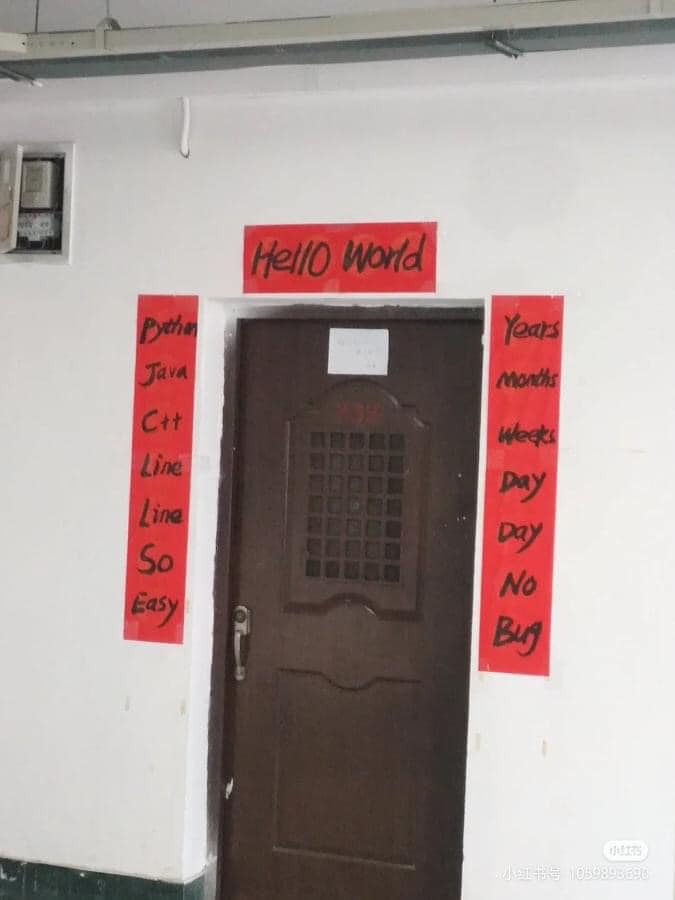 Hello World
Python
Java
C++
Line
Line
So
Easy
Years
Months
Weeks
Day
Day
No
Bug
小红书
小红书号 1059893690